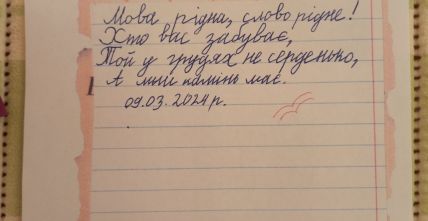 Мова рідна, слово рідне!
Хто вас забуває,
Той у грудях не серденько,
А лиш камінь має.
09.03.2024 р.